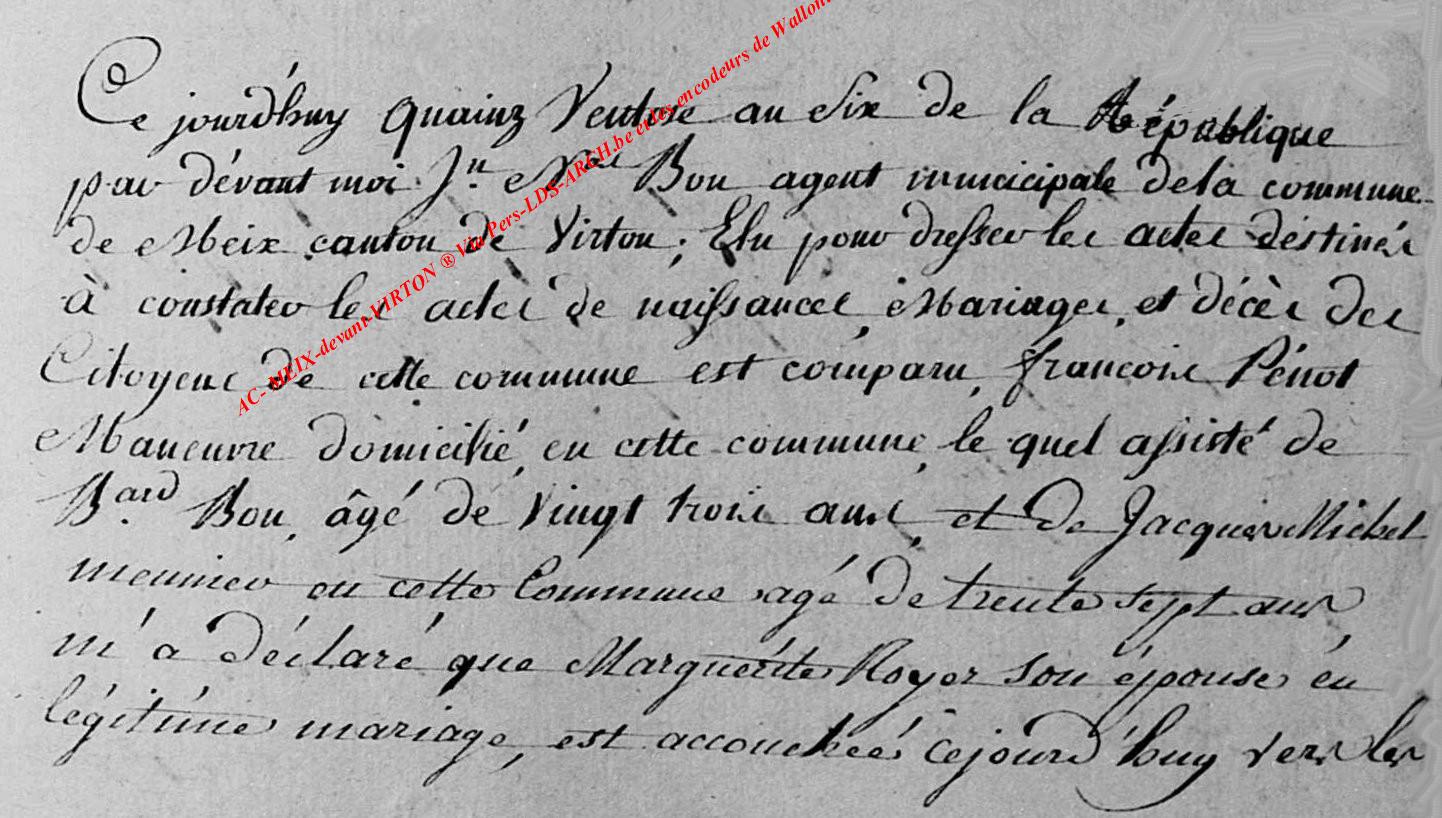 Ce jourd'huy quainz Ventose au six de la République
par dévant moi J.n N.el Bon agent municicipale dela commune
de Meix canton de Virton; Elu pour dresser les actes déstinés
à constater les actes de naissances, Mariages, et décès des
Citoyens de cette commune est comparu, francois Pénot
Maneuvre domicilié, en cette commune, le quel assisté de
B.ard Bon, âgé de vingt trois ans, et de Jacques Michel
meunier en cette Commune agé de trente sept ans
m'a déclaré que Marguérite Royer son épouse en
légitime mariage, est accouchée cejourd'huy vers les
AC-MEIX-devant-VIRTON ® Via Pers-LDS-ARCH.be et les encodeurs de Wallon